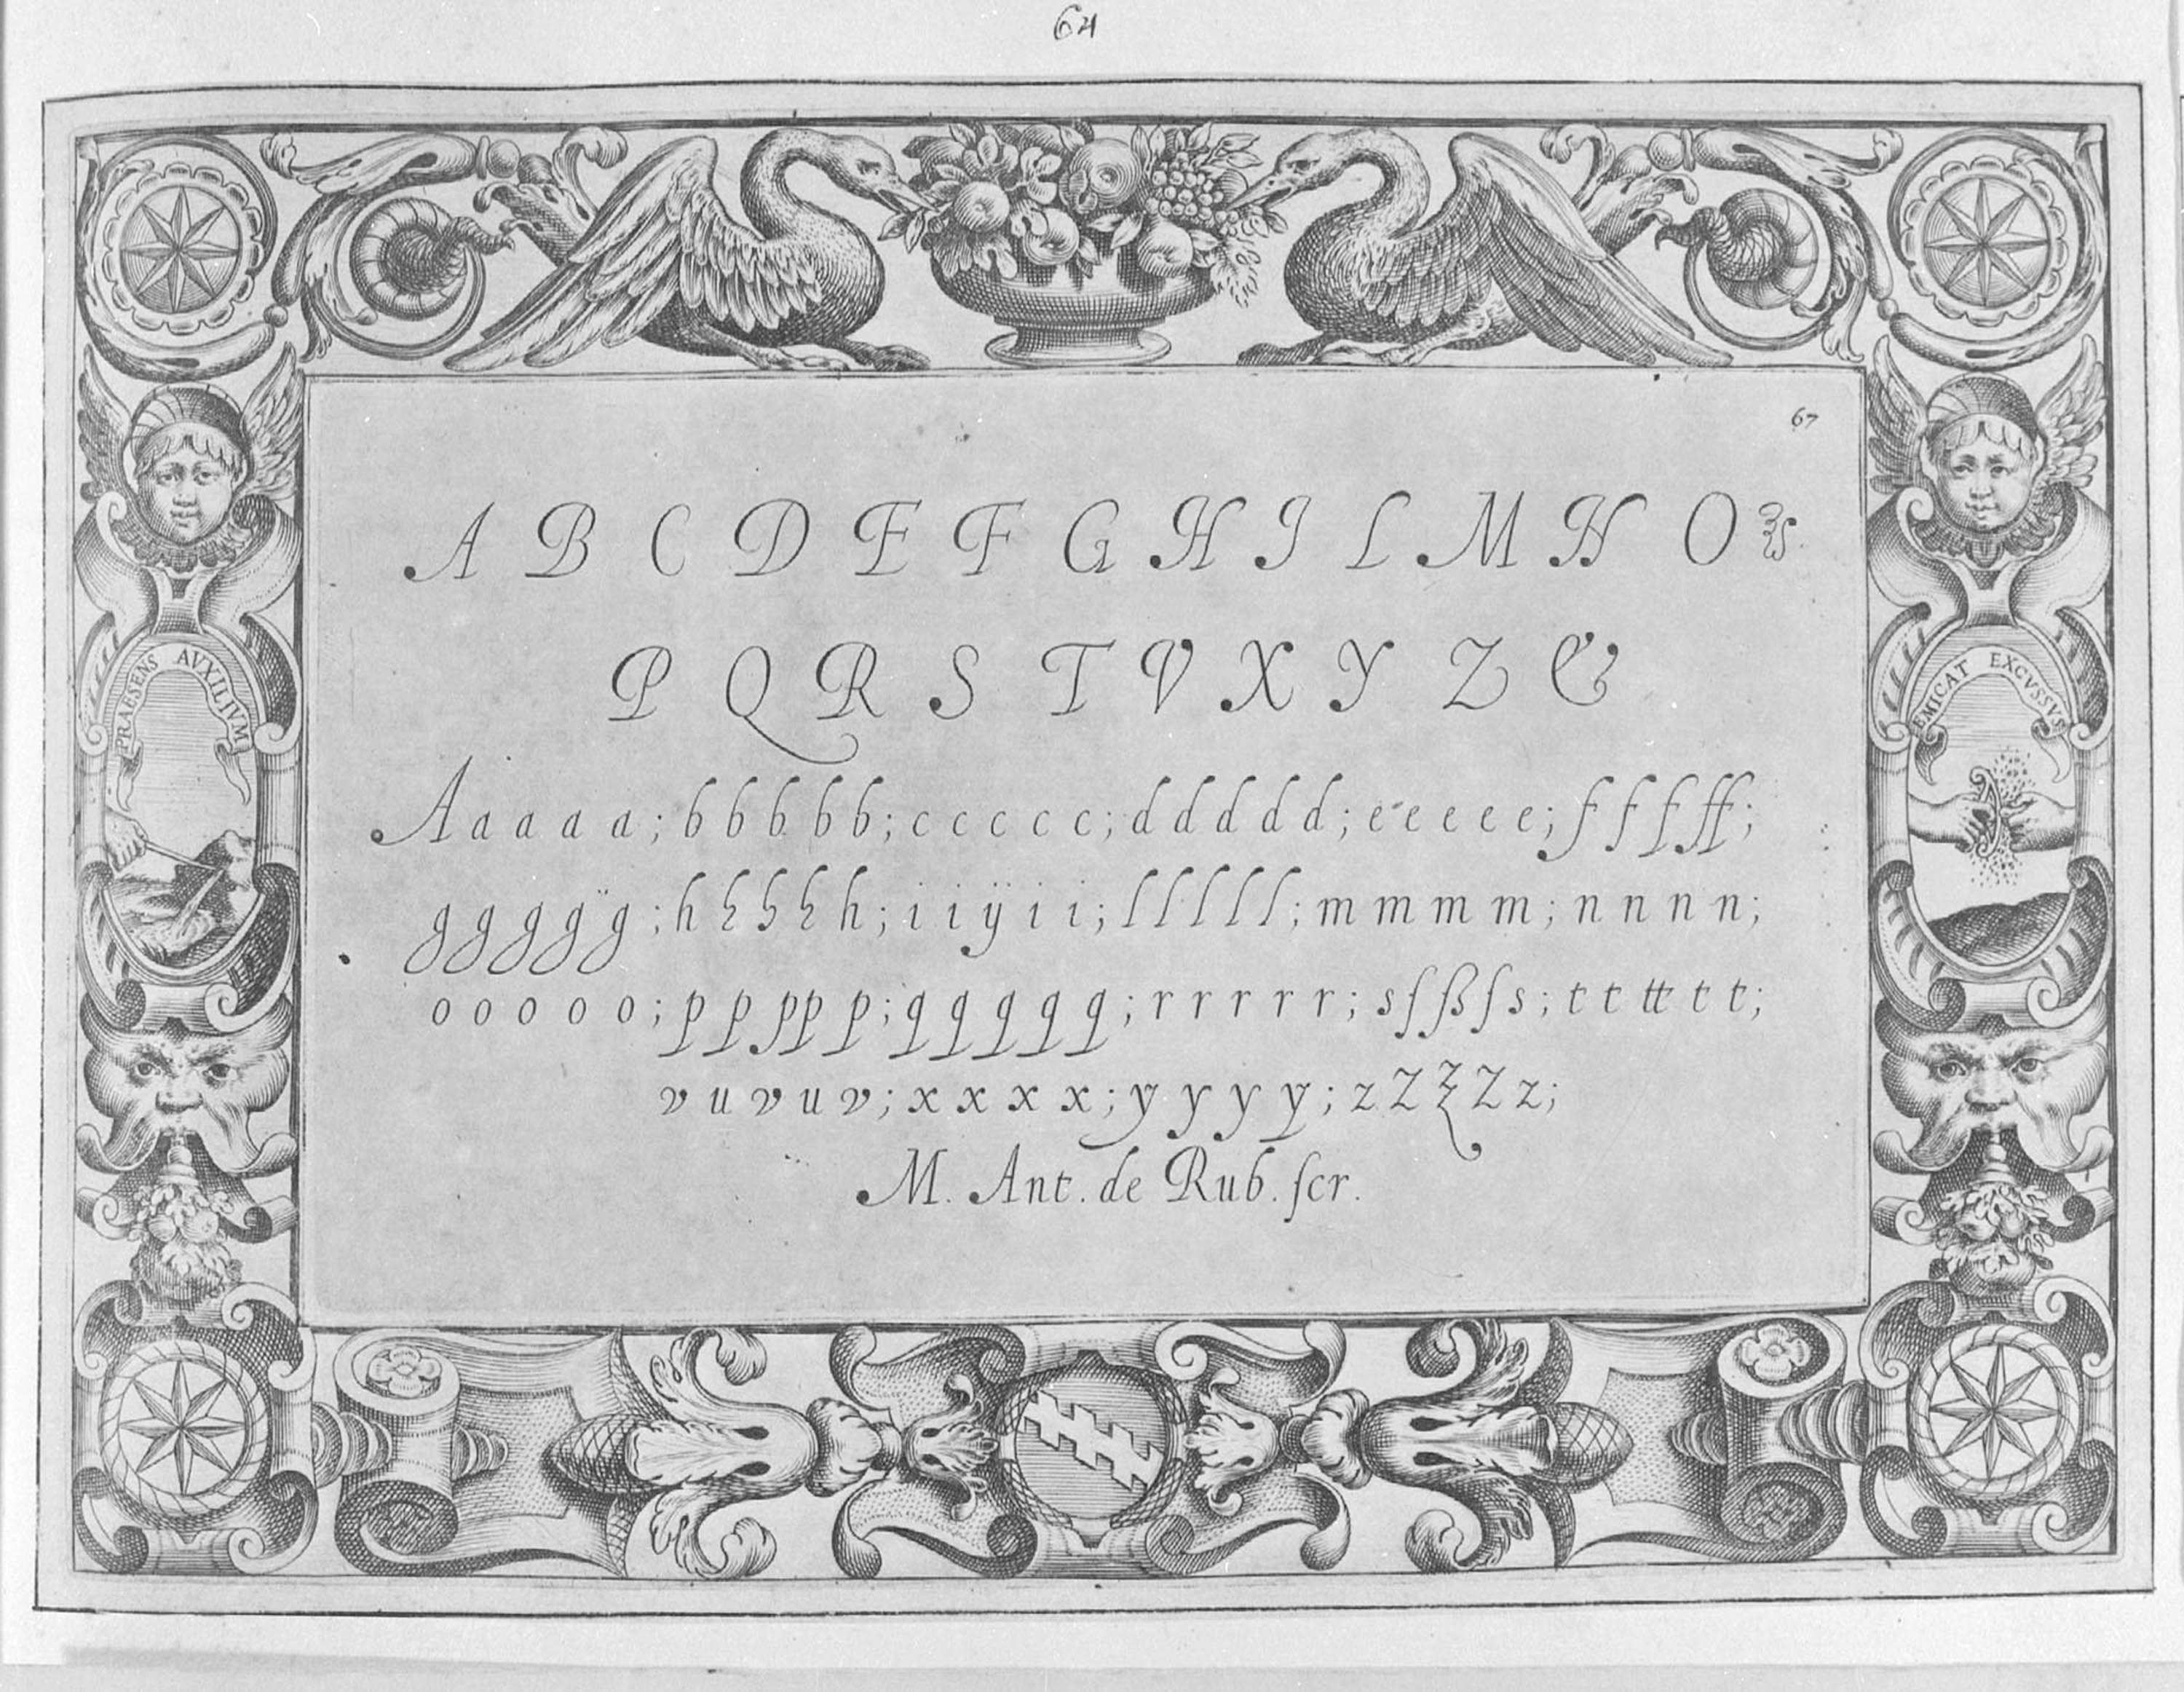 64
67
A B C D E F G H I L M N O
P Q R S T V X Y Z &
PRAESENS AVXILIVM
EMICAT EXCVSSVS
A a a a a; b b b b b; c c c c c; d d d d d; e e e e e; f f f ff;
g g g g g; h h h h h; i i ÿ i i; l l l l l; m m m m; n n n n;
o o o o o; p p pp p; q q q q q; r r r r r; s ſ ß ſ s; t t tt t t;
v u v u v; x x x x; y y y y; z Z z Z z;
M. Ant. de Rub. ſcr.